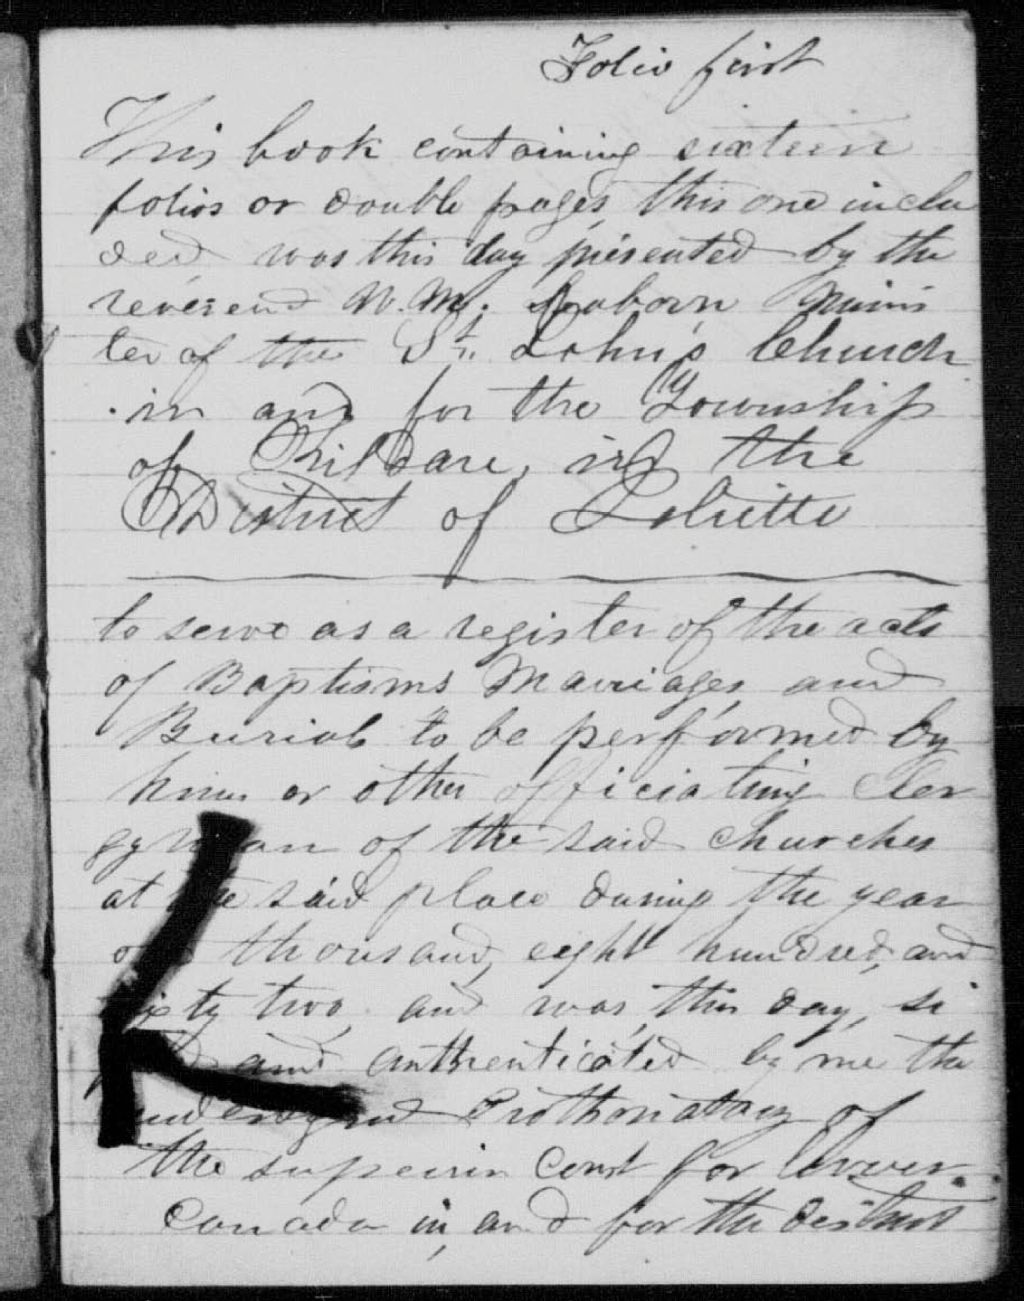 Folio first
This book containing sixteen
folios or double pages, this one inclu
ded was this day presented by the
reverend W. Minis
ter of the St. John's Church
in and for the Township
of Kildare, in the
District of Joliette
to serve as a register of the acts
of Baptisms Marriages and
Burials to be performed by
him or other officiating Cler
gyman of the said Churches
at the said place during the year
thousand eight hundred, and
sixty two, and was, this day, si
and authenticated by me the
undersigned Prothonotary of
the superior Court for lower
Canada in, and for the district